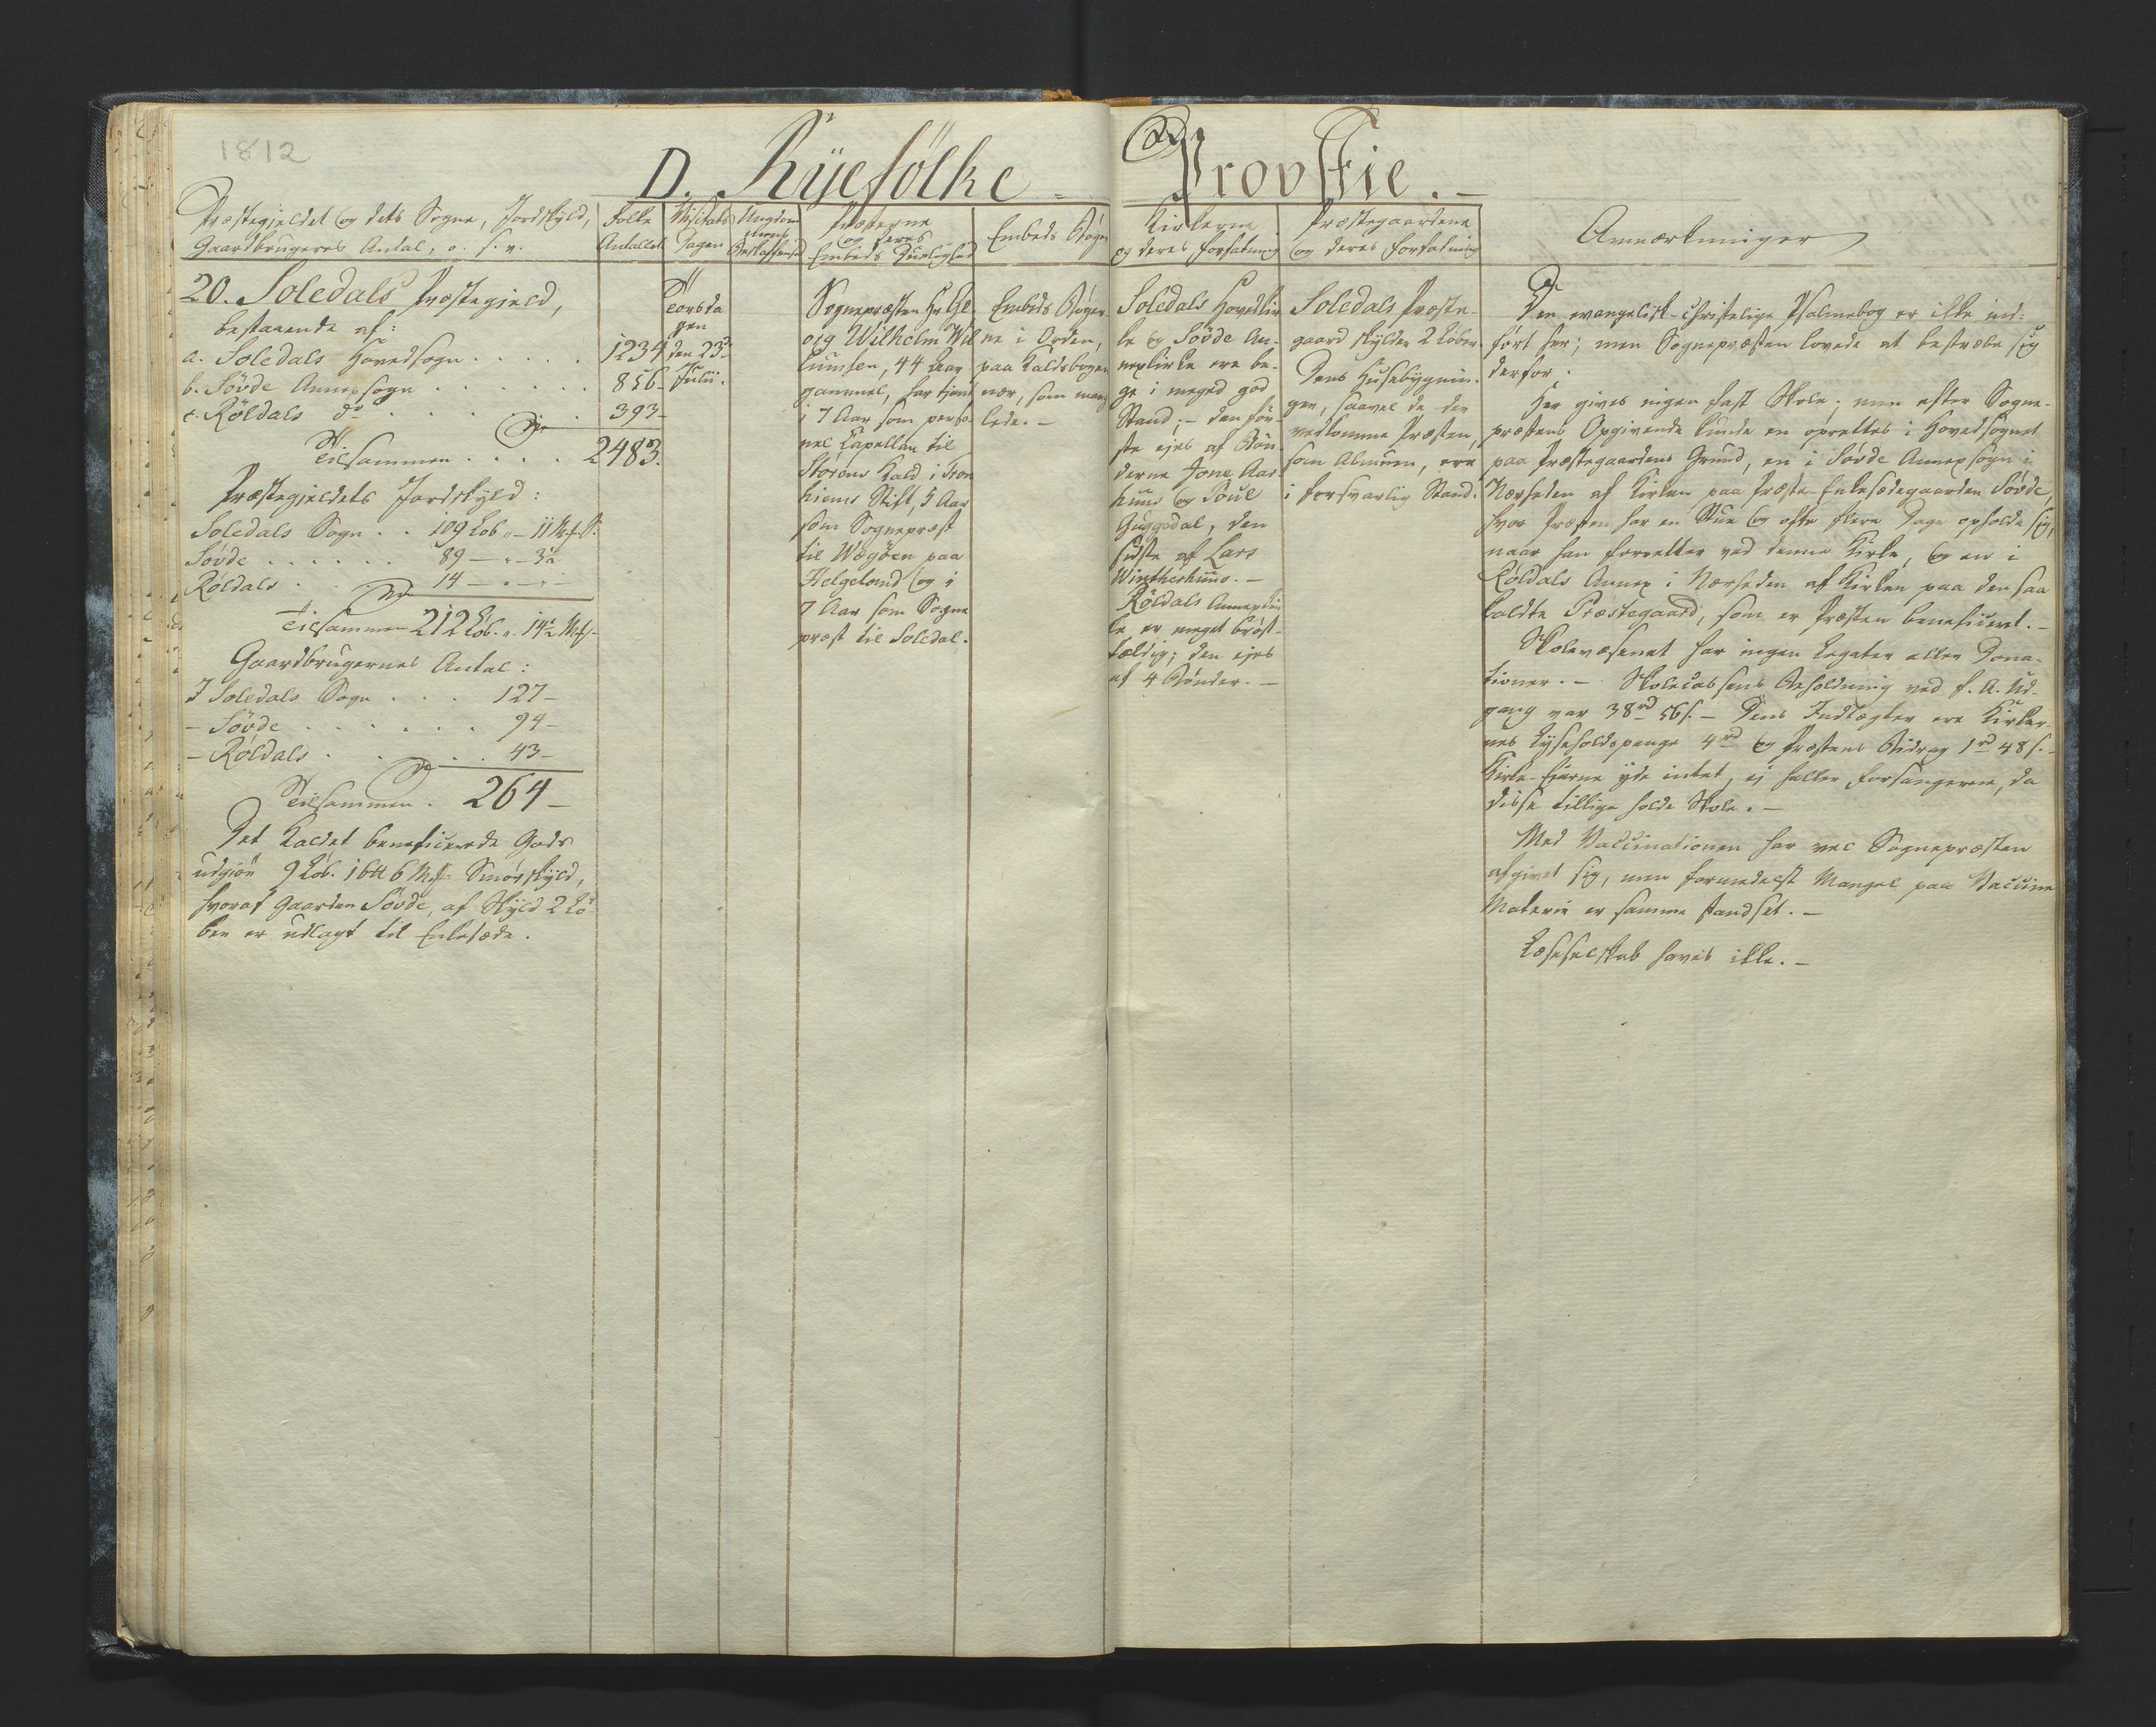 1812
D. Ryefolke
Provstie.
Præstegjeldet og dets Sogne, Jordskyld,
Gaardbrugernes Antal, o. s. v.
Folke
Antallet
Visitats
Dagen
Ungdom
mens
Beskaffenhed
Præsterne
og deres
Embeds Duelighed
Embeds Bøger
Kirkerne
og deres Forfatning
Præstegaardene
og deres Forfatning
Anmærkninger
20. Soledals Præstegjeld,
bestaaende af:
a. Soledals Hovedsogn . . . . . 1234
b. Søvde Annexsogn . . . . . . 856
c. Röldals do . . . . 393
Tilsammen . . . . 2483.
Præstegjeldets Jordskyld:
Soledals Sogn . . 109 Løb. " 11 Mk. S.
Søvde . . . . . . 89 — " — 3½
Röldals . . . 14 — " — "
Tilsammen 212 Løb. " 14½ Mk.
Gaardbrugernes Antal:
I Soledals Sogn . . . 127 —
- Søvde . . . . . . 94 —
- Röldals . . . . . 43 —
Tilsammen . 264 —
Det Kaldet beneficerede Gods
udgiør 9 Løb. 1 6 Mk. Smørskyld,
hvoraf Gaarden Søvde, af Skyld 2 Lø-
ber er udlagt til Enkesæde.
Torsda
gen
den 23de
Julii.
Sognepræsten Hr.
Wilhelm Wil
44 Aar
gammel, har tjent
i 7 Aar som perso-
nel Capellan til
Størens Kald i Tron
hiems Stift, 5 Aar
som Sognepræst
til Wægøen paa
Helgeland og i
7 Aar som Sogne
præst til Soledal.
Embeds Bøger-
ne i Orden,
paa Kaldsbogen
nær, som mang
lede. —
Soledals Hovedkir
ke og Søvde An-
nexkirke ere be-
ge i meged god
Stand; — den før-
ste ejes af Bøn-
derne Jone Aar-
huus og Poul
Guggedal, den
sidste af Lars
Wintherhuus. —
Röldals Annexkir
ke er meget brøst-
fældig; den ejes
af 4 Bønder. —
Soledals Præste-
gaard skylder 2 Løber.
Dens Husebygnin-
ger, saavel de den
vedkomme Præsten,
som Almuen, ere
i forsvarlig Stand.
Den evangelisk-christelige Psalmebog er ikke ind-
ført her; men Sognepræsten lovede at bestræbe sig
derfor.
Her gives ingen fast Skole; men efter Sogne-
præstens Opgivende kunde en oprettes i Hovedsognet
paa Præstegaardens Grund, en i Søvde Annexsogn i
Nærheden af Kirken paa Præste-Enkesædegaarden Søvde,
hvor Præsten har en Stue og ofte flere Dage opholde sig,
naar han forretter ved denne Kirke, og en i
Röldals Annex i Nærheden af Kirken paa den saa
kaldte Præstegaard, som er Præsten beneficeret. —
Skolevæsenet har ingen Legater eller Dona-
tioner. — Skolecassens Beholdning ved f. A. Ud-
gang var 38 rd 56 s. — Dens Indtægter ere Kirker-
nes Lyseholdspenge 4 rd og Præstens Bidrag 1 rd 48 s. —
Kirke-Ejerne yde intet, ej heller Forsangerne, da
disse tillige holde Skole. —
Med Vaccinationen har vel Sognepræsten
afgivet sig, men formedelst Mangel paa Vaccine
Materie er samme standset. —
Læseselskab haves ikke. —